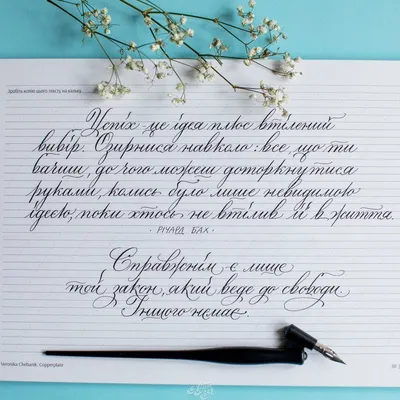 Зробіть ескіз цього тексту на кальку
Успіх - це ідея плюс втілений
вибір. Озирнися навколо: все, що ти
бачиш, до чого можеш доторкнутися
руками, колись було лише невидимою
ідеєю, поки хтось не втілив її в життя.
· РІЧАРД БАХ ·
Справжнім є лише
той закон, який веде до свободи.
Іншого немає.
Veronika Chebanik Copperplate